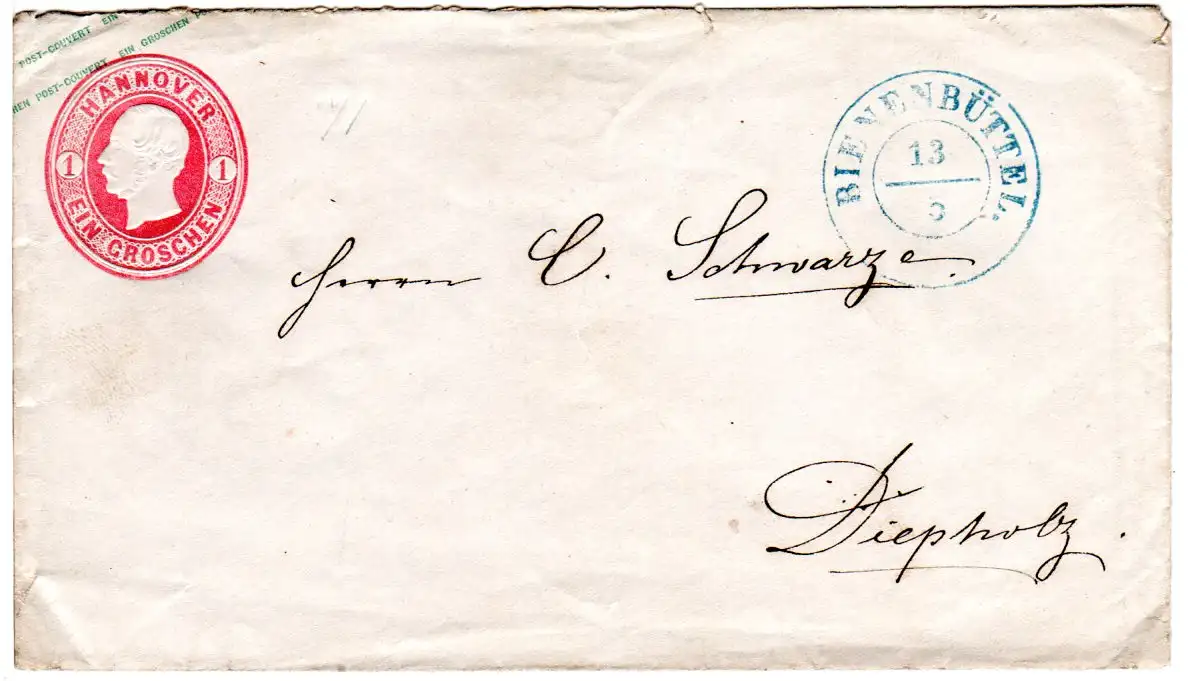 POST-COUVERT EIN
HEN POST-COUVERT EIN GROSCHEN PO
HANNOVER
1 1
EIN GROSCHEN
BIENENBÜTTEL.
13
5
Herrn C. Schwarze.
Diepholz.